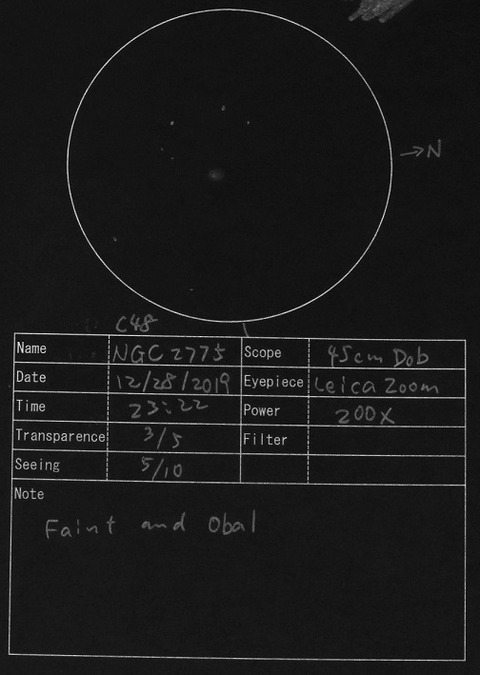 →N
C48
Name NGC 2775 Scope 45cm Dob
Date 12/28/2019 Eyepiece Leica Zoom
Time 23:22 Power 200x
Transparence 3/5 Filter
Seeing 5/10
Note
Faint and Obal